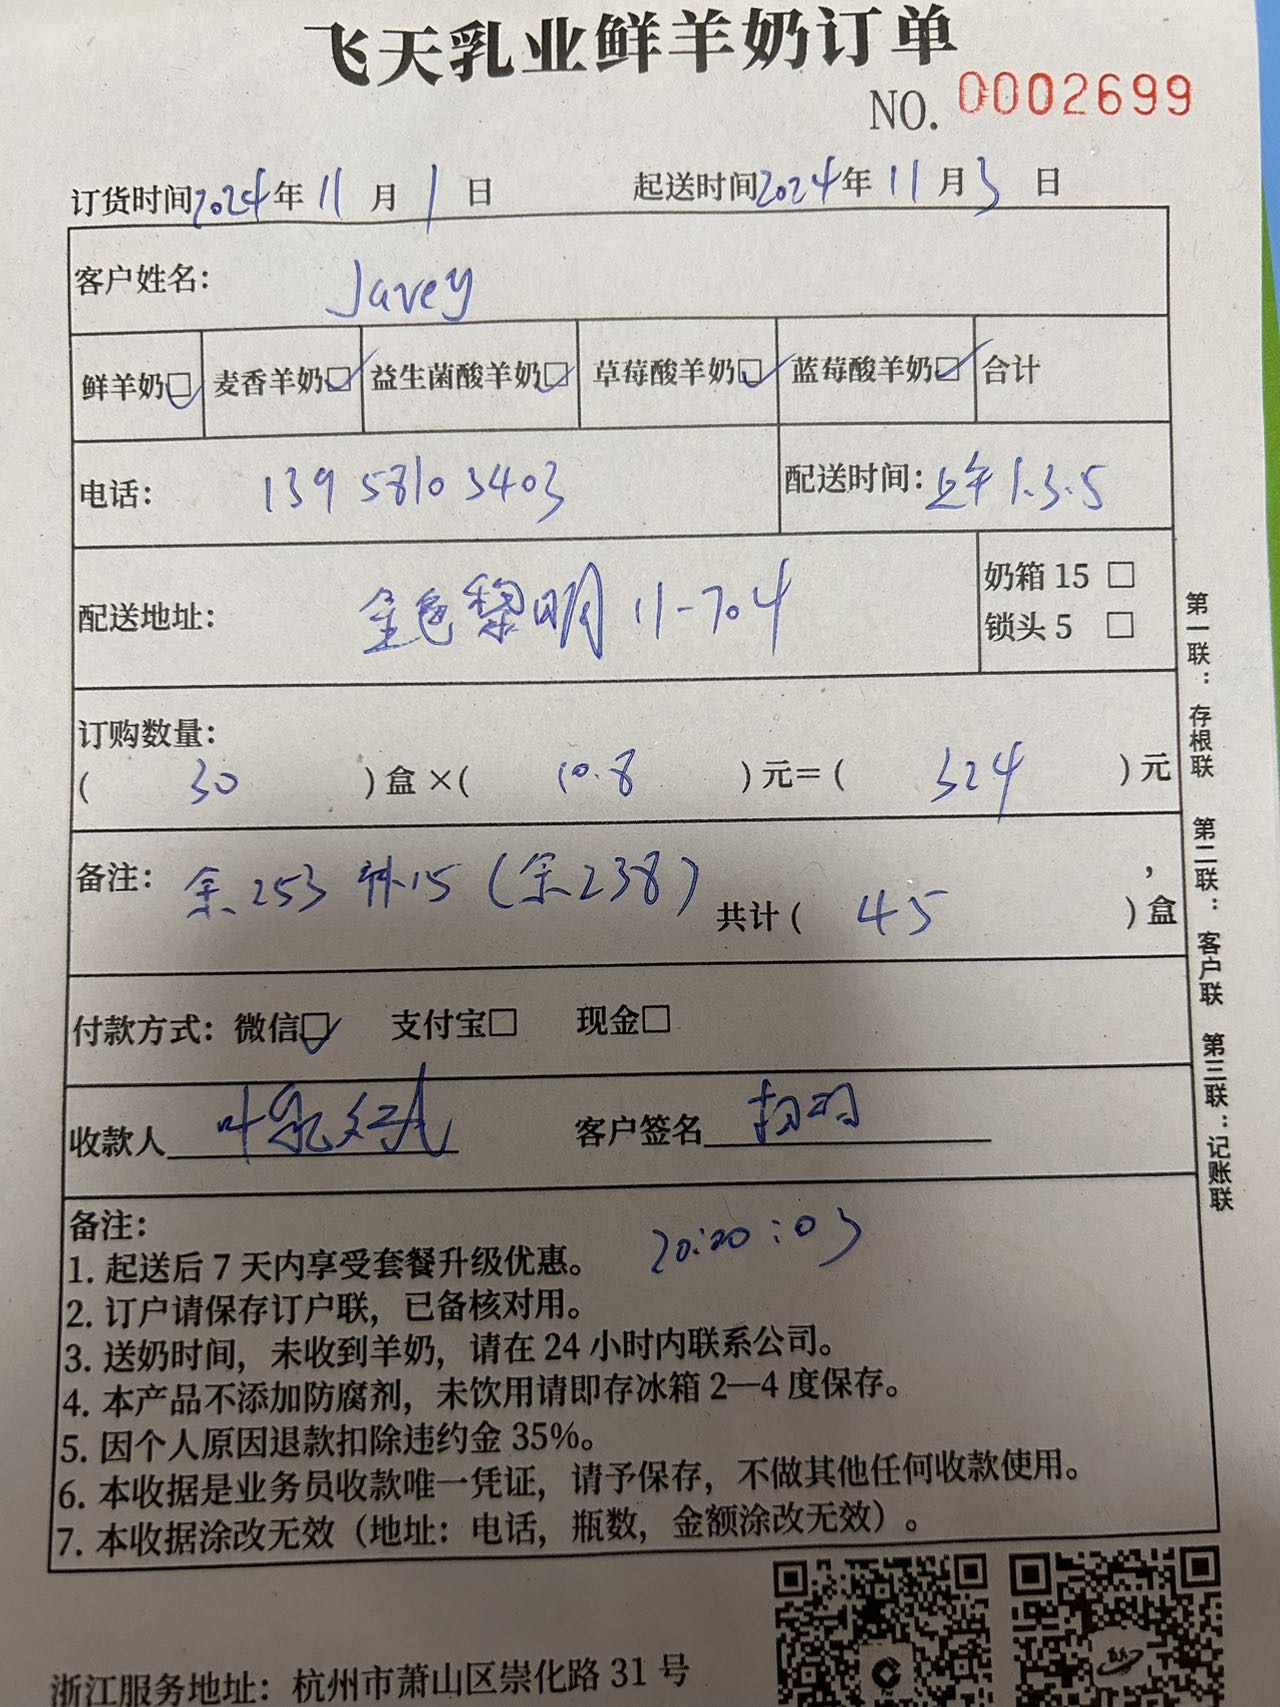 飞天乳业鲜羊奶订单
NO. 0002699
订货时间2024年 11 月 1 日 起送时间2024年 11 月 3 日
客户姓名: Javey
鲜羊奶☑ 麦香羊奶☑ 益生菌酸羊奶☑ 草莓酸羊奶☑ 蓝莓酸羊奶☑ 合计
电话: 139 5810 3403 配送时间: 上午 1.3.5
配送地址: 金色黎明 11-704
奶箱 15 □
锁头 5 □
订购数量:
( 30 )盒×( 10.8 )元=( 324 )元
备注: 余253 补15 (余238) 共计( 45 )盒
付款方式: 微信☑ 支付宝□ 现金□
收款人 客户签名
备注: 20:20:03
1. 起送后 7 天内享受套餐升级优惠。
2. 订户请保存订户联，已备核对用。
3. 送奶时间，未收到羊奶，请在 24 小时内联系公司。
4. 本产品不添加防腐剂，未饮用请即存冰箱 2—4 度保存。
5. 因个人原因退款扣除违约金 35%。
6. 本收据是业务员收款唯一凭证，请予保存，不做其他任何收款使用。
7. 本收据涂改无效（地址: 电话，瓶数，金额涂改无效）。
第一联: 存根联 第二联: 客户联 第三联: 记账联
浙江服务地址: 杭州市萧山区崇化路 31 号